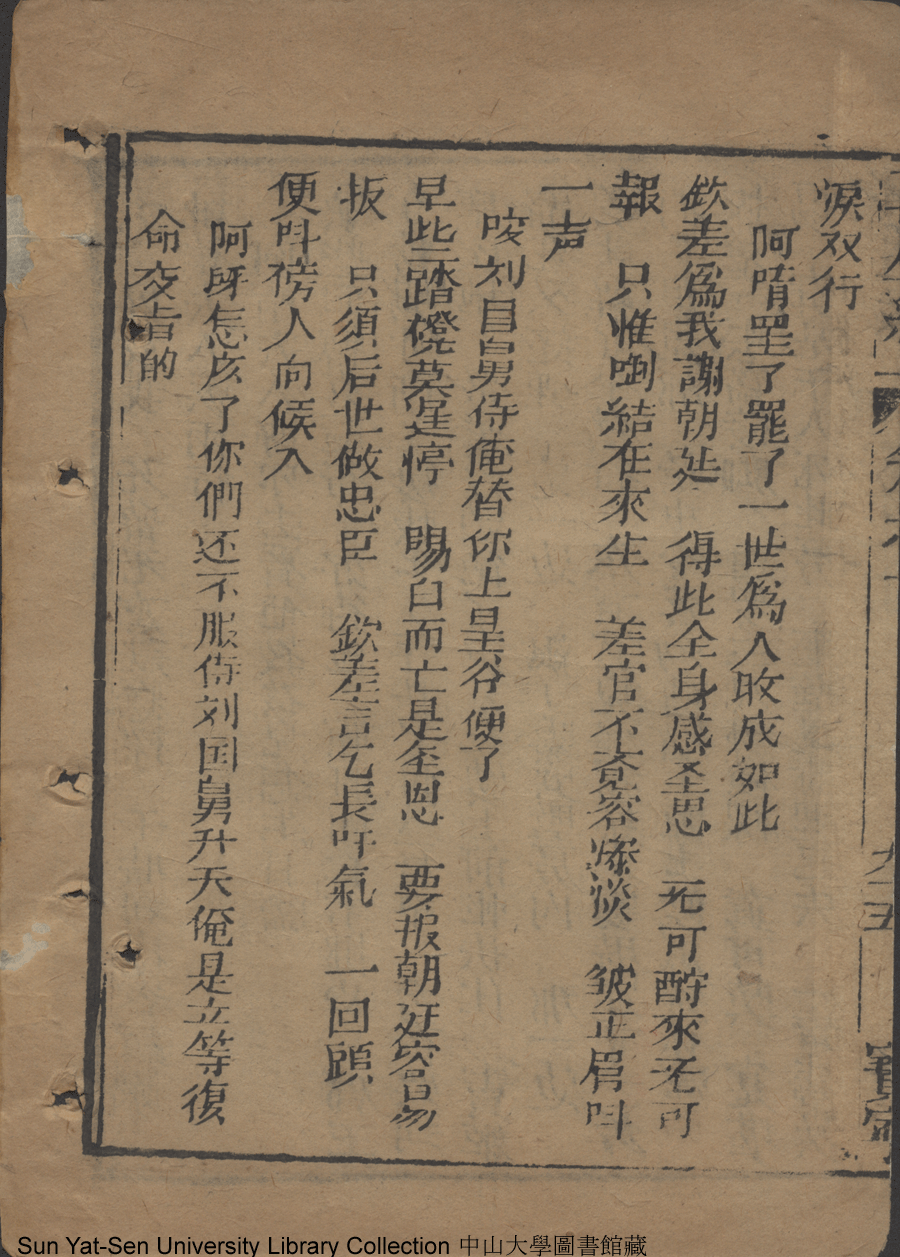 淚双行
阿唷罢了罷了一世為人收成如此
欽差為我謝朝廷　得此全身感圣恩　无可酧來无可
報　只惟啣結在來生　差官不竟容慘淡　皱正眉呌
一声
咬刘国舅侍俺替你上呈谷便了
早此三踏櫈莫延停　賜白而亡是圣恩　要报朝廷容易
扳　只須后世做忠臣　欽差言乞長吁氣　一回頋
便呌徬人向候入
阿呀怎亥了你們还不服侍刘国舅升天俺是立等復
命交旨的
九二五
Sun Yat-Sen University Library Collection 中山大學圖書館藏